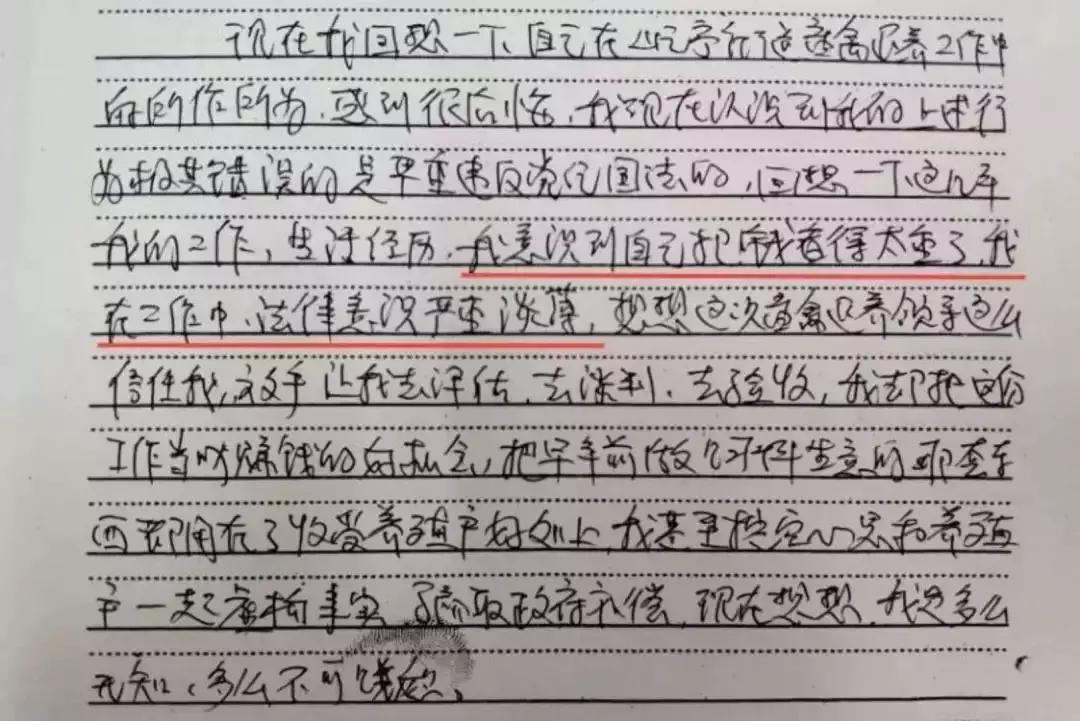 现在我回想一下,自己在从事行道畜禽退养工作中
的所作所为,感到很后悔,我现在认识到我的上述行
为极其错误的是严重违反党纪国法的,回想一下这几年
我的工作,生活经历,我意识到自己把钱看得太重了,我
在工作中,法律意识严重淡薄,想想这次畜禽退养领导这么
信任我,放手让我去评估、去谈判、去验收,我却把这份
工作当成赚钱的好机会,把早年前做生意的那套东
西都用在了收受养殖户好处上,我甚至挖空心思和养殖
户一起虚构事实骗取政府补偿,现在想想,我是多么
无知、多么不可饶恕。